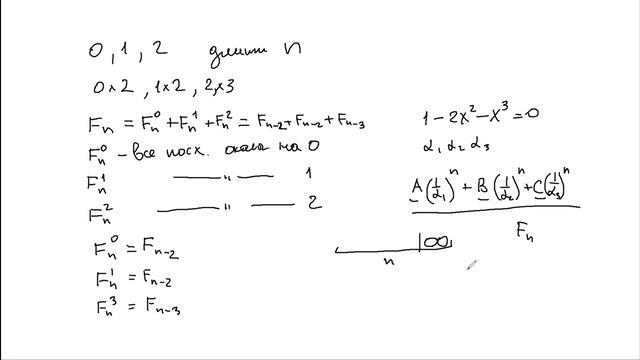 0, 1, 2 длины n
0×2, 1×2, 2×3
Fn = Fn^0 + Fn^1 + Fn^2 = Fn-2 + Fn-2 + Fn-3
Fn^0 - все посл. на 0
Fn^1 —— " —— 1
Fn^2 —— " —— 2
Fn^0 = Fn-2
Fn^1 = Fn-2
Fn^3 = Fn-3
1 - 2x^2 - x^3 = 0
α1 α2 α3
A(1/α1)^n + B(1/α2)^n + C(1/α3)^n
Fn
00
n